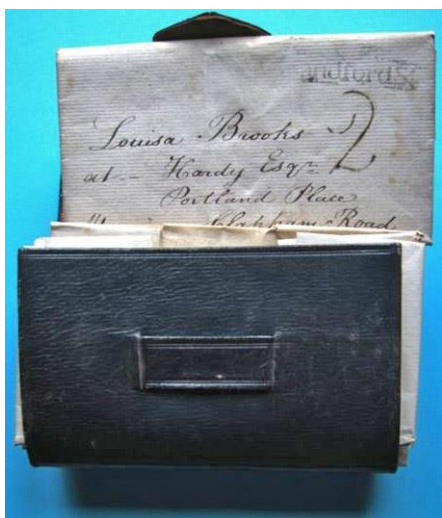 andford
2
Louisa Brooks
at — Hardy Esqre
Portland Place
Clapham Road